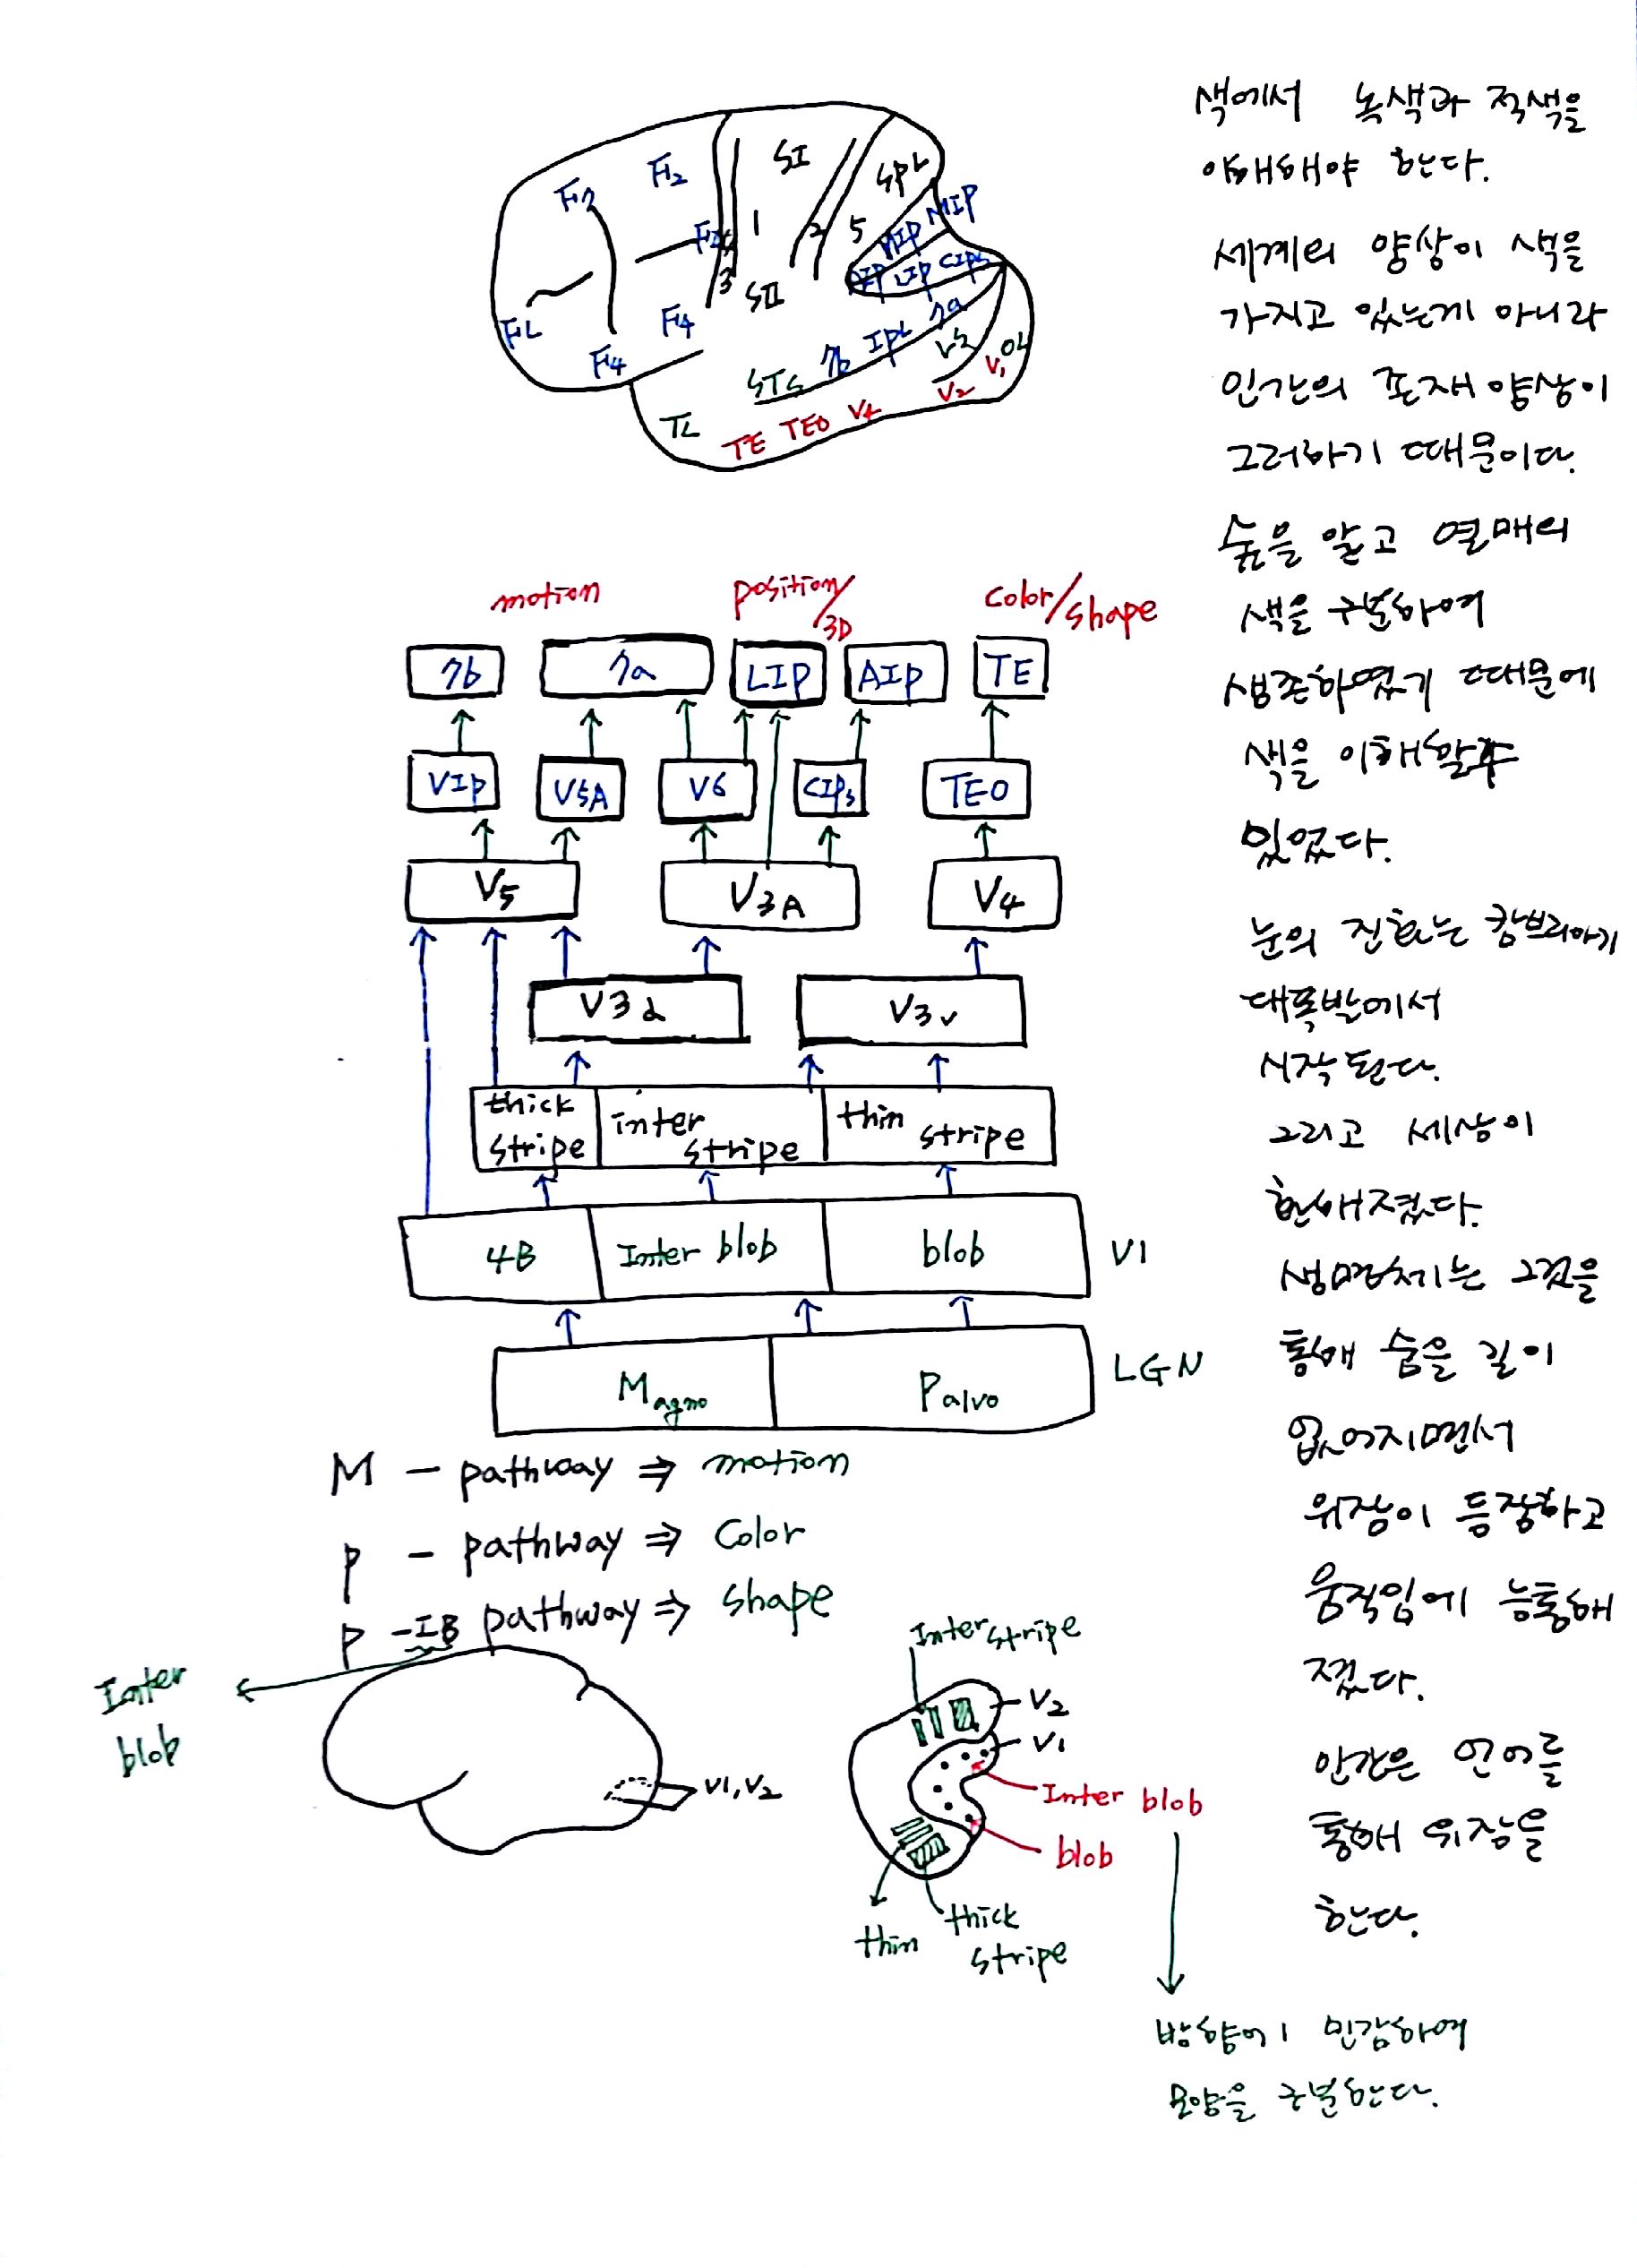 색에서 녹색과 적색을
이해해야 한다.
세계의 양상이 색을
가지고 있는게 아니라
인간의 존재양상이
그러하기 때문이다.
숲을 알고 열매의
색을 구분하여
생존하였기 때문에
색을 이해할수
있었다.
눈의 진화는 캄브리아기
대폭발에서
시작된다.
그리고 세상이
환해졌다.
생명체는 그것을
통해 숨을 길이
없어지면서
위장이 등장하고
움직임에 능통해
졌다.
인간은 언어를
통해 위장을
한다.
F7 F2 SI SPL
1 2 5 MIP
3 SII AIP LIP CIPs
FL F4 F4
STS 7b IPL 7a V3 OL
TL TE TEO V4 V2 V1
motion position/3D color/shape
7b 7a LIP AIP TE
VIP V5A V6 CIPs TEO
V5 V3A V4
V3d V3v
thick stripe inter stripe thin stripe
4B Inter blob blob V1
Magno Palvo LGN
M - pathway ⇒ motion
P - pathway ⇒ Color
P - IB pathway ⇒ shape
Inter
blob
V1, V2
Inter stripe
V2
V1
Inter blob
blob
thin
thick
stripe
방향에 민감하여
모양을 구분한다.